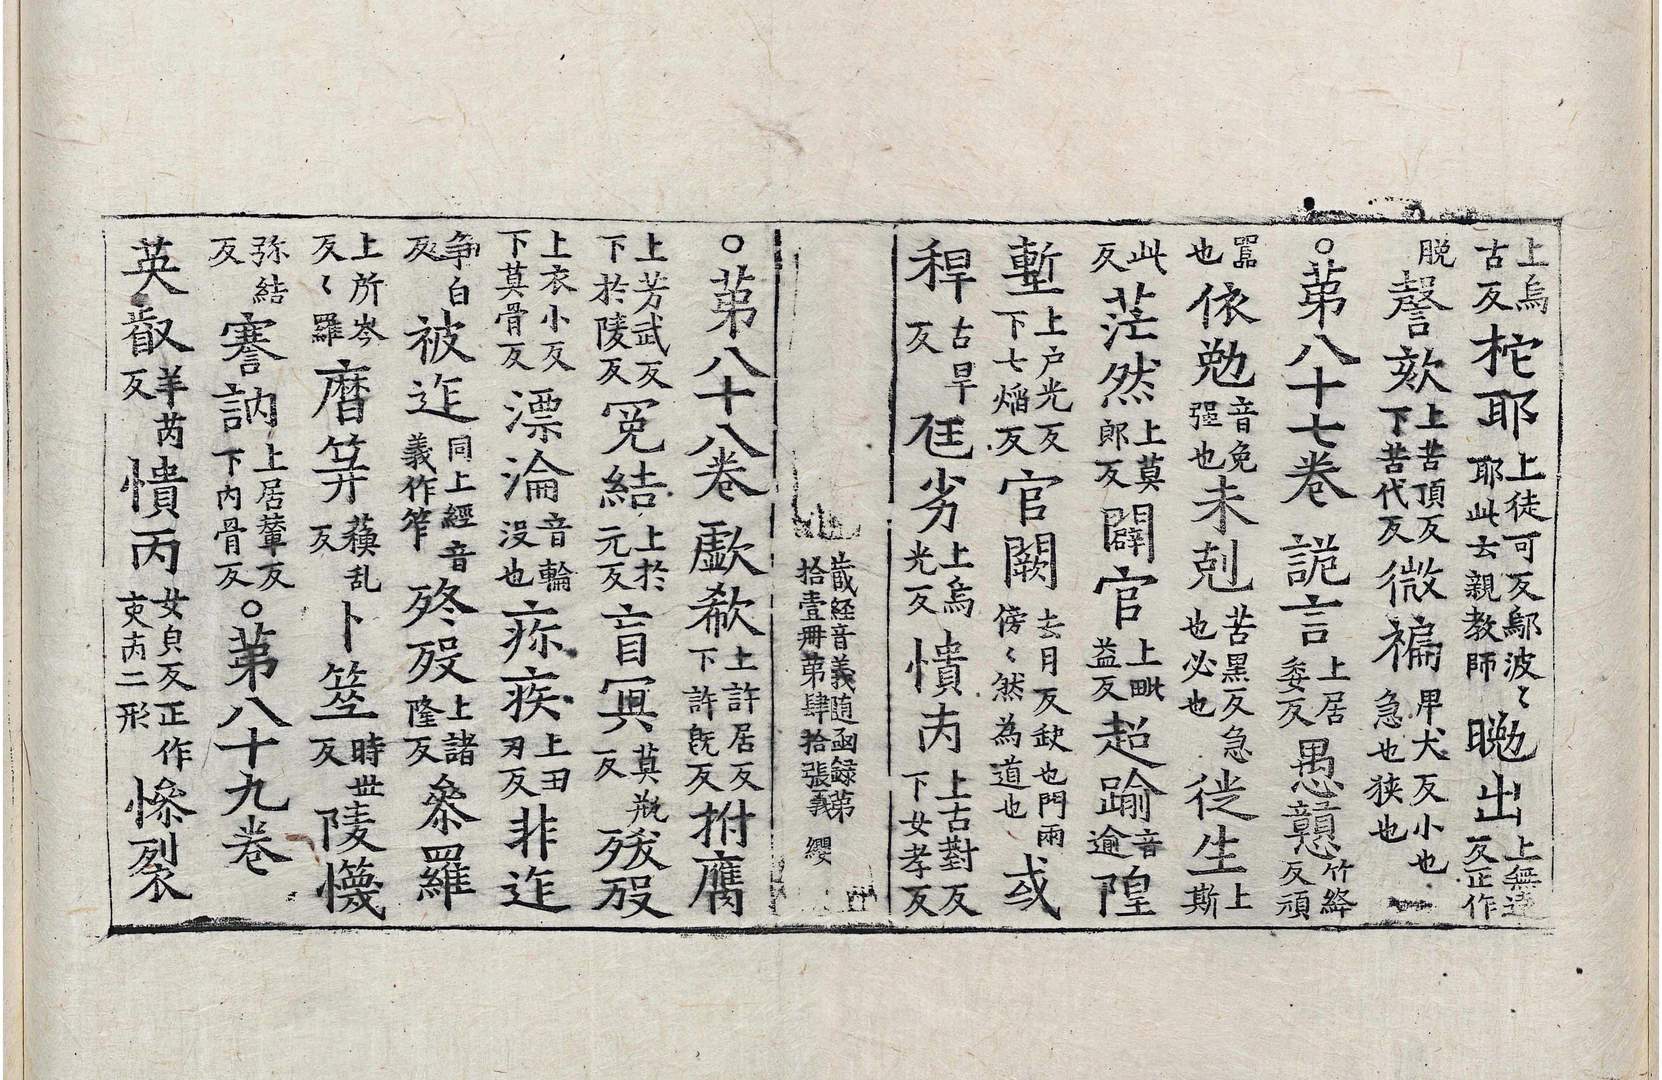 上烏古反柁耶上徒可反鄔波〻耶此云親教師䁂出上無遠反正作
脱謦欬上苦頂反下苦代反微褊卑犬反小也急也狭也
○苐八十七巻詭言上居委反愚戇竹絳反頑
嚚也依勉音免強也未剋苦黑反急也必也徙生上斯
此反茫然上莫郎反闢官上毗益反超踰音逾隍
塹上户光反下七焰反官闕去月反缺也門兩傍〻然為道也或
稈古旱反尪劣上烏光反憒丙上古對反下女孝反
蔵経音義随函録苐拾壹冊苐肆拾張義 纓
○苐八十八巻歔欷上許居反下許旣反拊膺
上芳武反下於陵反寃結上於元反盲冥莫瓶反殀歿
上衣小反下莫骨反漂淪音輪没也疢疾上丑刃反非迮
争白反被迮同上經音義作笮終歿上諸隆反叅羅
上所岑反〻羅磿筭蘓乱反卜筮時世反陵懱
弥結反謇訥上居輦反下内骨反○苐八十九巻
英叡羊芮反憒丙女貞反正作吏𠕅二形慘裂